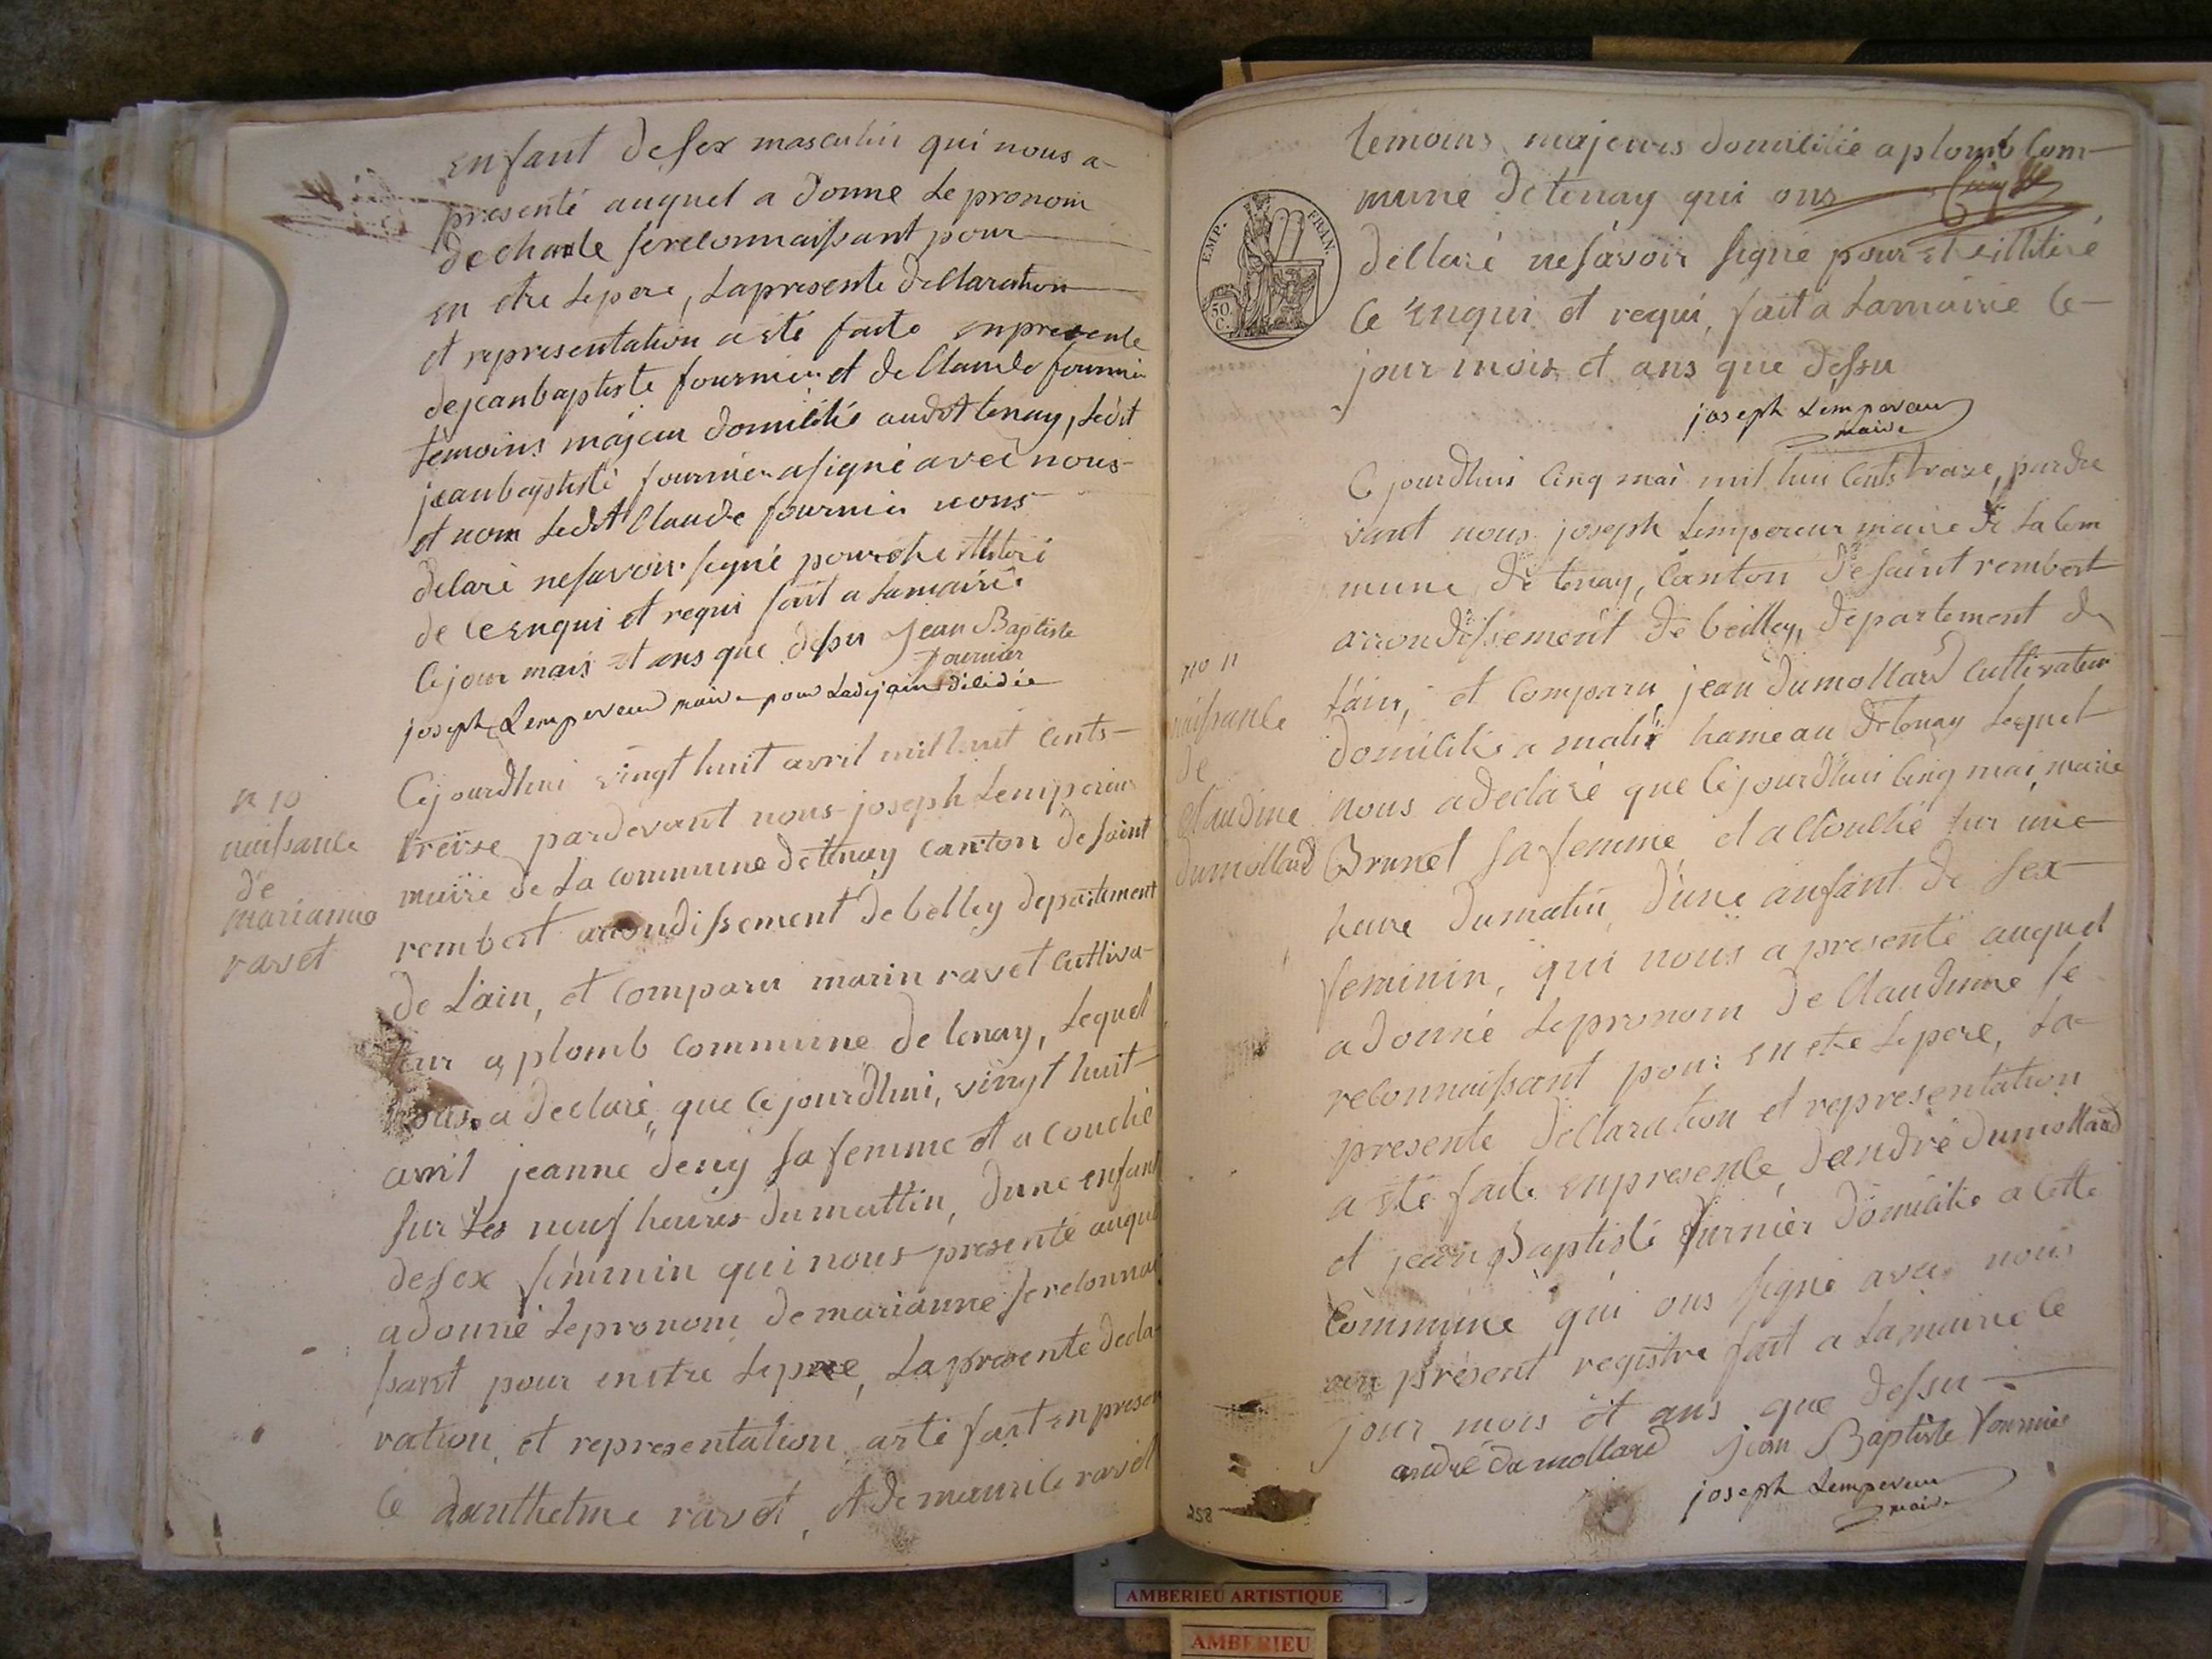 enfant de sex masculin qui nous a
presenté auquel a donné le pronom
de charle se reconnaissant pour
en etre le pere, la presente declaration
et representation a eté faite en presente
de jean baptiste fournier et de Claude fournier
temoins majeur domicilié audit tenay, ledit
jean baptiste fournier a signé avec nous
et nom ledit Claude fournier nons
delaré ne savoir signé pour etre illiteré
de ce enqui et requi fait a la mairie
le jour mais et ans que dessu Jean Baptiste
fournier
joseph Lempereur maire pour
N 10
naissance
de
marianne
ravet
Cejourdhui vingt huit avril mil huit cents
treize pardevant nous joseph Lempereur
maire de la commune de tenay canton de saint
rembert arrondissement de belley departement
de L'ain, et comparu marin ravet cultiva-
teur a plomb commune de tenay, lequel
nous a declaré, que cejourdhui, vingt huit
avril jeanne deny sa femme et a couché
sur les neuf heures du mattin, dune enfant
de sex féminin qui nous presenté auquel
a donné le pronom de marianne se reconnai
ssant pour en etre le pere, la presente decla-
ration et representation a eté fait en presen
ce danthelme ravet, et de maurile ravet
temoins majeurs domicilié a plomb com-
mune de tenay qui ons
EMP. FRAN.
50.
C.
declaré ne savoir signé pour et illiteré
ce enqui et requi, fait a la mairie le
jour mois et ans que dessu
joseph Lempereur
maire
no 11
naissance
de
Claudine
dumollard
Cejourdhui cinq mai mil hui cents treize, parde
vant nous joseph Lempereur maire de la com
mune de tenay, canton de saint rembert
arrondissement de beilley, departement de
l'ain, et comparu jean dumollard cultivateur
domicilié a malix hameau de tenay lequel
nous a declaré que cejourdhui cinq mai, marie
Brunet sa femme et a couché sur une
heure du matin, d'une anfant de sex
feminin, qui nous a presenté auquel
a donné le pronom de Claudinne se
reconnaissant pour en etre le pere, la
presente declaration et representation
a eté faite en presence, d'andré dumollard
et jean Baptiste furnier domicilié a cette
commune qui ons signé avec nous
au présent registre fait a la mairie le
jour mois et ans que dessu
andré dumollard Jean Baptiste fournier
joseph Lempereur
maire
258
AMBERIEU ARTISTIQUE
AMBERIEU